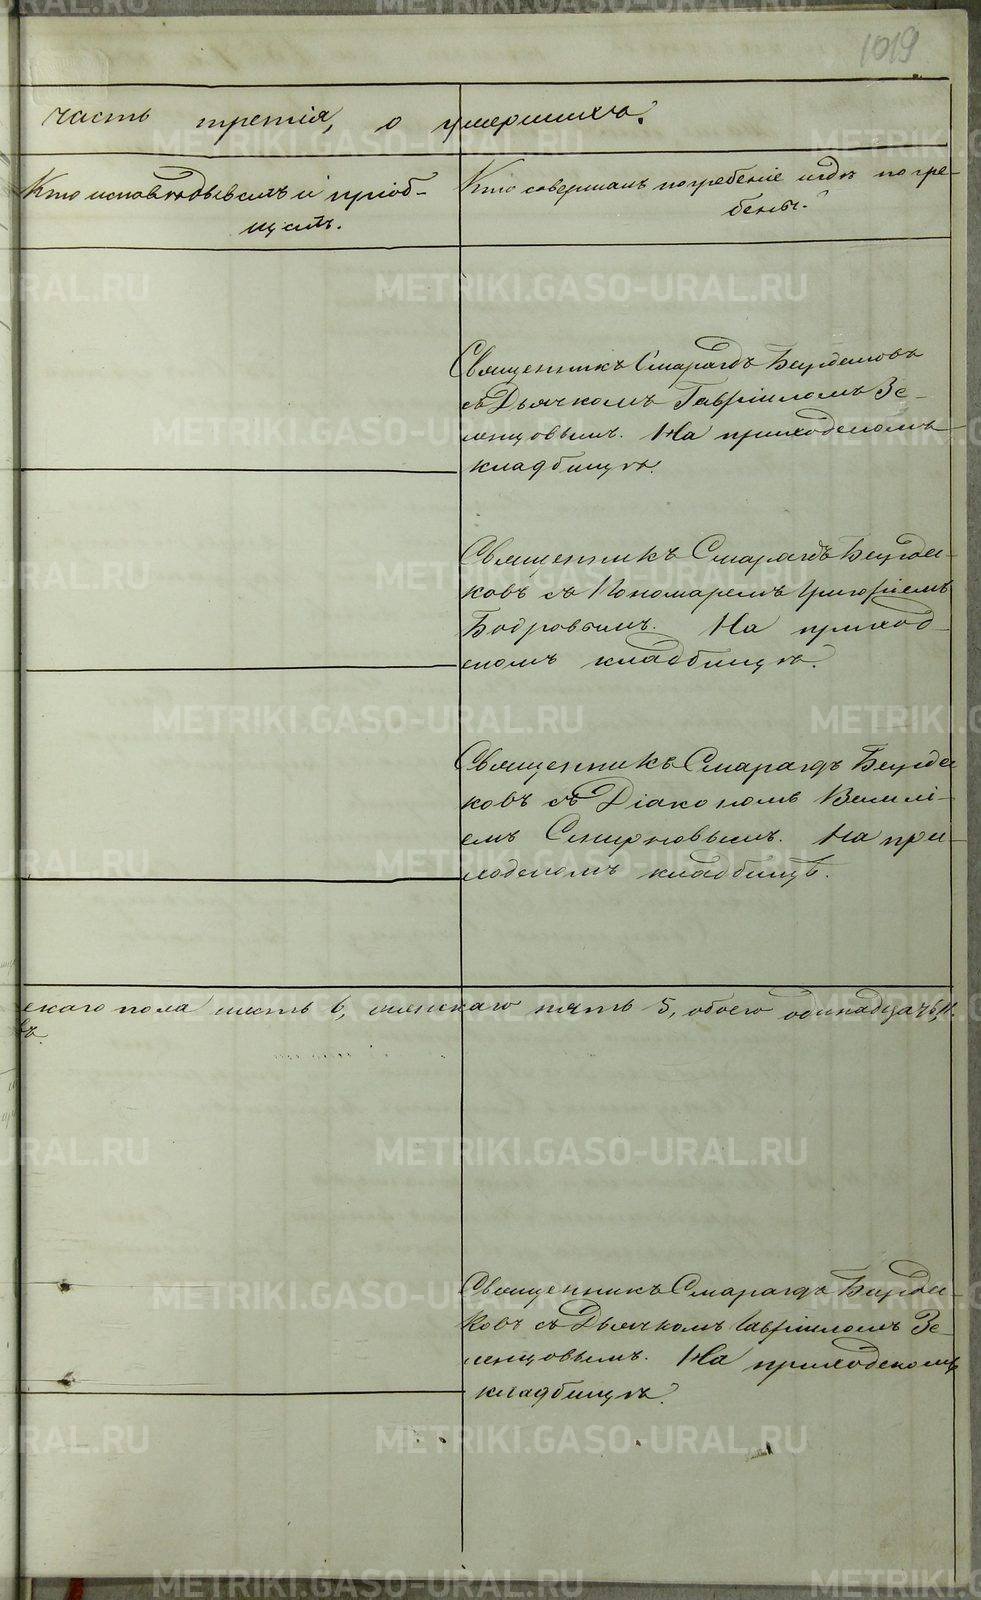 1019
часть третія, о умершихъ.
Кто исповѣдывалъ и пріоб-
щалъ.
Кто совершалъ погребеніе и гдѣ погре-
бены.
Священникъ Смарагдъ Бурдаковъ
съ Дьячкомъ Гавріиломъ Зе-
ленцовымъ. На приходскомъ
кладбищѣ.
Священникъ Смарагдъ Бурда-
ковъ съ Пономаремъ Григоріемъ
Бодровымъ. На приход-
скомъ кладбищѣ.
Священникъ Смарагдъ Бурда
ковъ съ Діакономъ Василі-
емъ Смирновымъ. На при-
ходскомъ кладбищѣ.
скаго пола шесть 6, женскаго пять 5, обоего одинадцать 11.
въ
Священникъ Смарагдъ Бурда-
ковъ съ Дьячкомъ Гавріиломъ Зе-
ленцовымъ. На приходскомъ
кладбищѣ.
METRIKI.GASO-URAL.RU